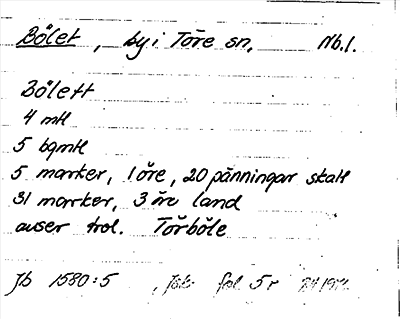 Bölet, by i Töre sn, Nb.l.
Bölett
4 mtl
5 bgmtl
5 marker, 1 öre, 20 pänningar skatt
31 marker, 3 öre land
avser trol. Törböle
Jb 1580:5, fol 5r